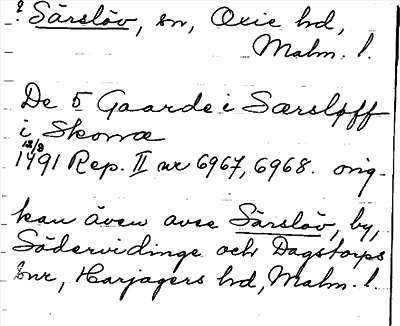 ? Särslöv, sn, Oxie hd,
Malm. l.
De 5 Gaarde i Særsløff
i Skonæ
12/3
1491 Rep. II nr 6967, 6968. orig.
kan även avse Särslöv, by,
Södervidinge och Dagstorps
snr, Harjagers hd, Malm. l.